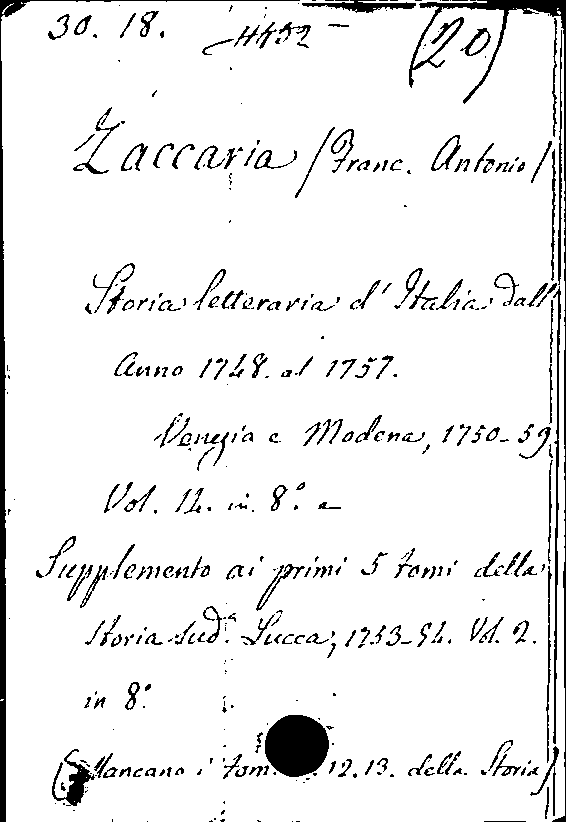 30. 18. (20)
Zaccaria (Franc. Antonio)
Storia letteraria d' Italia dall'
Anno 1748. al 1757.
Venezia e Modena, 1750-59.
Vol. 14. in 8.° e
Supplemento ai primi 5 tomi della
Storia sud.ª Lucca, 1753-54. Vol. 2.
in 8.°
(Mancano i tom. 12.13. della Storia)